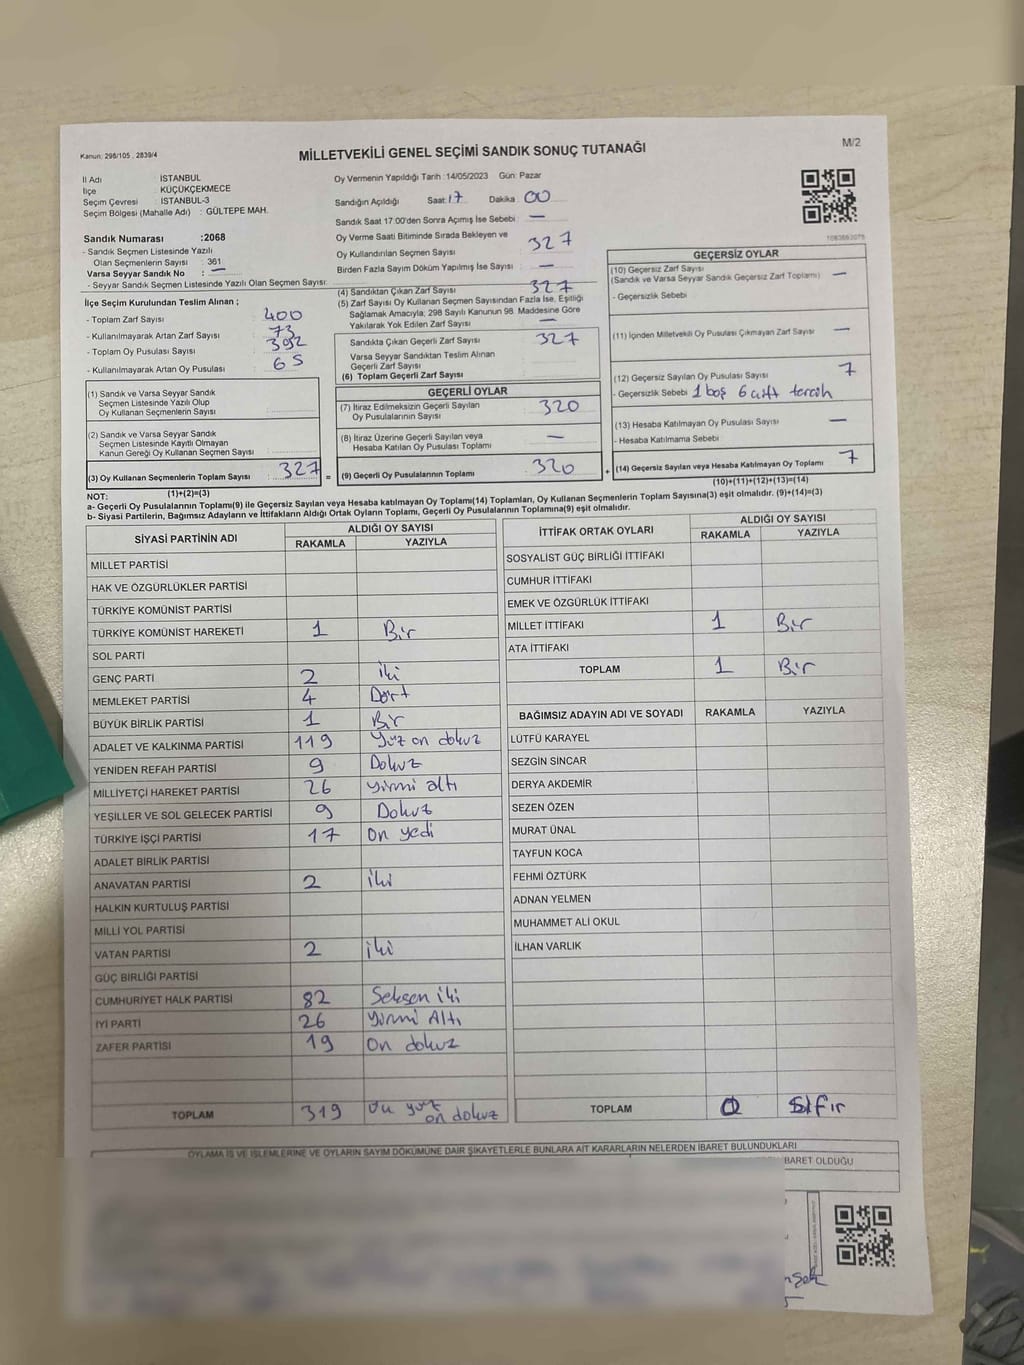 Kanun: 298/105 , 2839/4
MİLLETVEKİLİ GENEL SEÇİMİ SANDIK SONUÇ TUTANAĞI
M/2
İl Adı : İSTANBUL
İlçe : KÜÇÜKÇEKMECE
Seçim Çevresi : İSTANBUL-3
Seçim Bölgesi (Mahalle Adı) : GÜLTEPE MAH.
Sandık Numarası :2068
- Sandık Seçmen Listesinde Yazılı
Olan Seçmenlerin Sayısı : 361
Varsa Seyyar Sandık No : —
- Seyyar Sandık Seçmen Listesinde Yazılı Olan Seçmen Sayısı:
Oy Vermenin Yapıldığı Tarih :14/05/2023 Gün: Pazar
Sandığın Açıldığı Saat: 17 Dakika: 00
Sandık Saat 17:00'den Sonra Açımış İse Sebebi —
Oy Verme Saati Bitiminde Sırada Bekleyen ve
Oy Kullandırılan Seçmen Sayısı 327
Birden Fazla Sayım Döküm Yapılmış İse Sayısı —
(4) Sandıktan Çıkan Zarf Sayısı 327
(5) Zarf Sayısı Oy Kullanan Seçmen Sayısından Fazla İse, Eşitliği
Sağlamak Amacıyla, 298 Sayılı Kanunun 98. Maddesine Göre
Yakılarak Yok Edilen Zarf Sayısı —
İlçe Seçim Kurulundan Teslim Alınan ;
- Toplam Zarf Sayısı 400
- Kullanılmayarak Artan Zarf Sayısı 73
- Toplam Oy Pusulası Sayısı 392
- Kullanılmayarak Artan Oy Pusulası 65
Sandıkta Çıkan Geçerli Zarf Sayısı 327
Varsa Seyyar Sandıktan Teslim Alınan
Geçerli Zarf Sayısı
(6) Toplam Geçerli Zarf Sayısı
(1) Sandık ve Varsa Seyyar Sandık
Seçmen Listesinde Yazılı Olup
Oy Kullanan Seçmenlerin Sayısı
(2) Sandık ve Varsa Seyyar Sandık
Seçmen Listesinde Kayıtlı Olmayan
Kanun Gereği Oy Kullanan Seçmen Sayısı
(3) Oy Kullanan Seçmenlerin Toplam Sayısı 327 =
(1)+(2)=(3)
GEÇERLİ OYLAR
(7) İtiraz Edilmeksizin Geçerli Sayılan
Oy Pusulalarının Sayısı 320
(8) İtiraz Üzerine Geçerli Sayılan veya
Hesaba Katılan Oy Pusulası Toplamı —
(9) Geçerli Oy Pusulalarının Toplamı 320 +
GEÇERSİZ OYLAR
(10) Geçersiz Zarf Sayısı —
(Sandık ve Varsa Seyyar Sandık Geçersiz Zarf Toplamı)
- Geçersizlik Sebebi
(11) İçinden Milletvekili Oy Pusulası Çıkmayan Zarf Sayısı —
(12) Geçersiz Sayılan Oy Pusulası Sayısı 7
- Geçersizlik Sebebi 1 boş 6 çift tercih
(13) Hesaba Katılmayan Oy Pusulası Sayısı —
- Hesaba Katılmama Sebebi
(14) Geçersiz Sayılan veya Hesaba Katılmayan Oy Toplamı 7
(10)+(11)+(12)+(13)=(14)
NOT:
a- Geçerli Oy Pusulalarının Toplamı(9) ile Geçersiz Sayılan veya Hesaba katılmayan Oy Toplamı(14) Toplamları, Oy Kullanan Seçmenlerin Toplam Sayısına(3) eşit olmalıdır. (9)+(14)=(3)
b- Siyasi Partilerin, Bağımsız Adayların ve İttifakların Aldığı Ortak Oyların Toplamı, Geçerli Oy Pusulalarının Toplamına(9) eşit olmalıdır.
SİYASİ PARTİNİN ADI ALDIĞI OY SAYISI
RAKAMLA YAZIYLA
MİLLET PARTİSİ
HAK VE ÖZGÜRLÜKLER PARTİSİ
TÜRKİYE KOMÜNİST PARTİSİ
TÜRKİYE KOMÜNİST HAREKETİ 1 Bir
SOL PARTİ
GENÇ PARTİ 2 iki
MEMLEKET PARTİSİ 4 Dört
BÜYÜK BİRLİK PARTİSİ 1 Bir
ADALET VE KALKINMA PARTİSİ 119 Yüz on dokuz
YENİDEN REFAH PARTİSİ 9 Dokuz
MİLLİYETÇİ HAREKET PARTİSİ 26 yirmi altı
YEŞİLLER VE SOL GELECEK PARTİSİ 9 Dokuz
TÜRKİYE İŞÇİ PARTİSİ 17 on yedi
ADALET BİRLİK PARTİSİ
ANAVATAN PARTİSİ 2 iki
HALKIN KURTULUŞ PARTİSİ
MİLLİ YOL PARTİSİ
VATAN PARTİSİ 2 iki
GÜÇ BİRLİĞİ PARTİSİ
CUMHURİYET HALK PARTİSİ 82 Seksen iki
İYİ PARTİ 26 Yirmi Altı
ZAFER PARTİSİ 19 On dokuz
TOPLAM 319 yüz
on dokuz
İTTİFAK ORTAK OYLARI ALDIĞI OY SAYISI
RAKAMLA YAZIYLA
SOSYALİST GÜÇ BİRLİĞİ İTTİFAKI
CUMHUR İTTİFAKI
EMEK VE ÖZGÜRLÜK İTTİFAKI
MİLLET İTTİFAKI 1 Bir
ATA İTTİFAKI
TOPLAM 1 Bir
BAĞIMSIZ ADAYIN ADI VE SOYADI RAKAMLA YAZIYLA
LÜTFÜ KARAYEL
SEZGİN SİNCAR
DERYA AKDEMİR
SEZEN ÖZEN
MURAT ÜNAL
TAYFUN KOCA
FEHMİ ÖZTÜRK
ADNAN YELMEN
MUHAMMET ALİ OKUL
İLHAN VARLIK
TOPLAM 0 Sıfır
OYLAMA İŞ VE İŞLEMLERİNE VE OYLARIN SAYIM DÖKÜMÜNE DAİR ŞİKAYETLERLE BUNLARA AİT KARARLARIN NELERDEN İBARET BULUNDUKLARI
BARET OLDUĞU